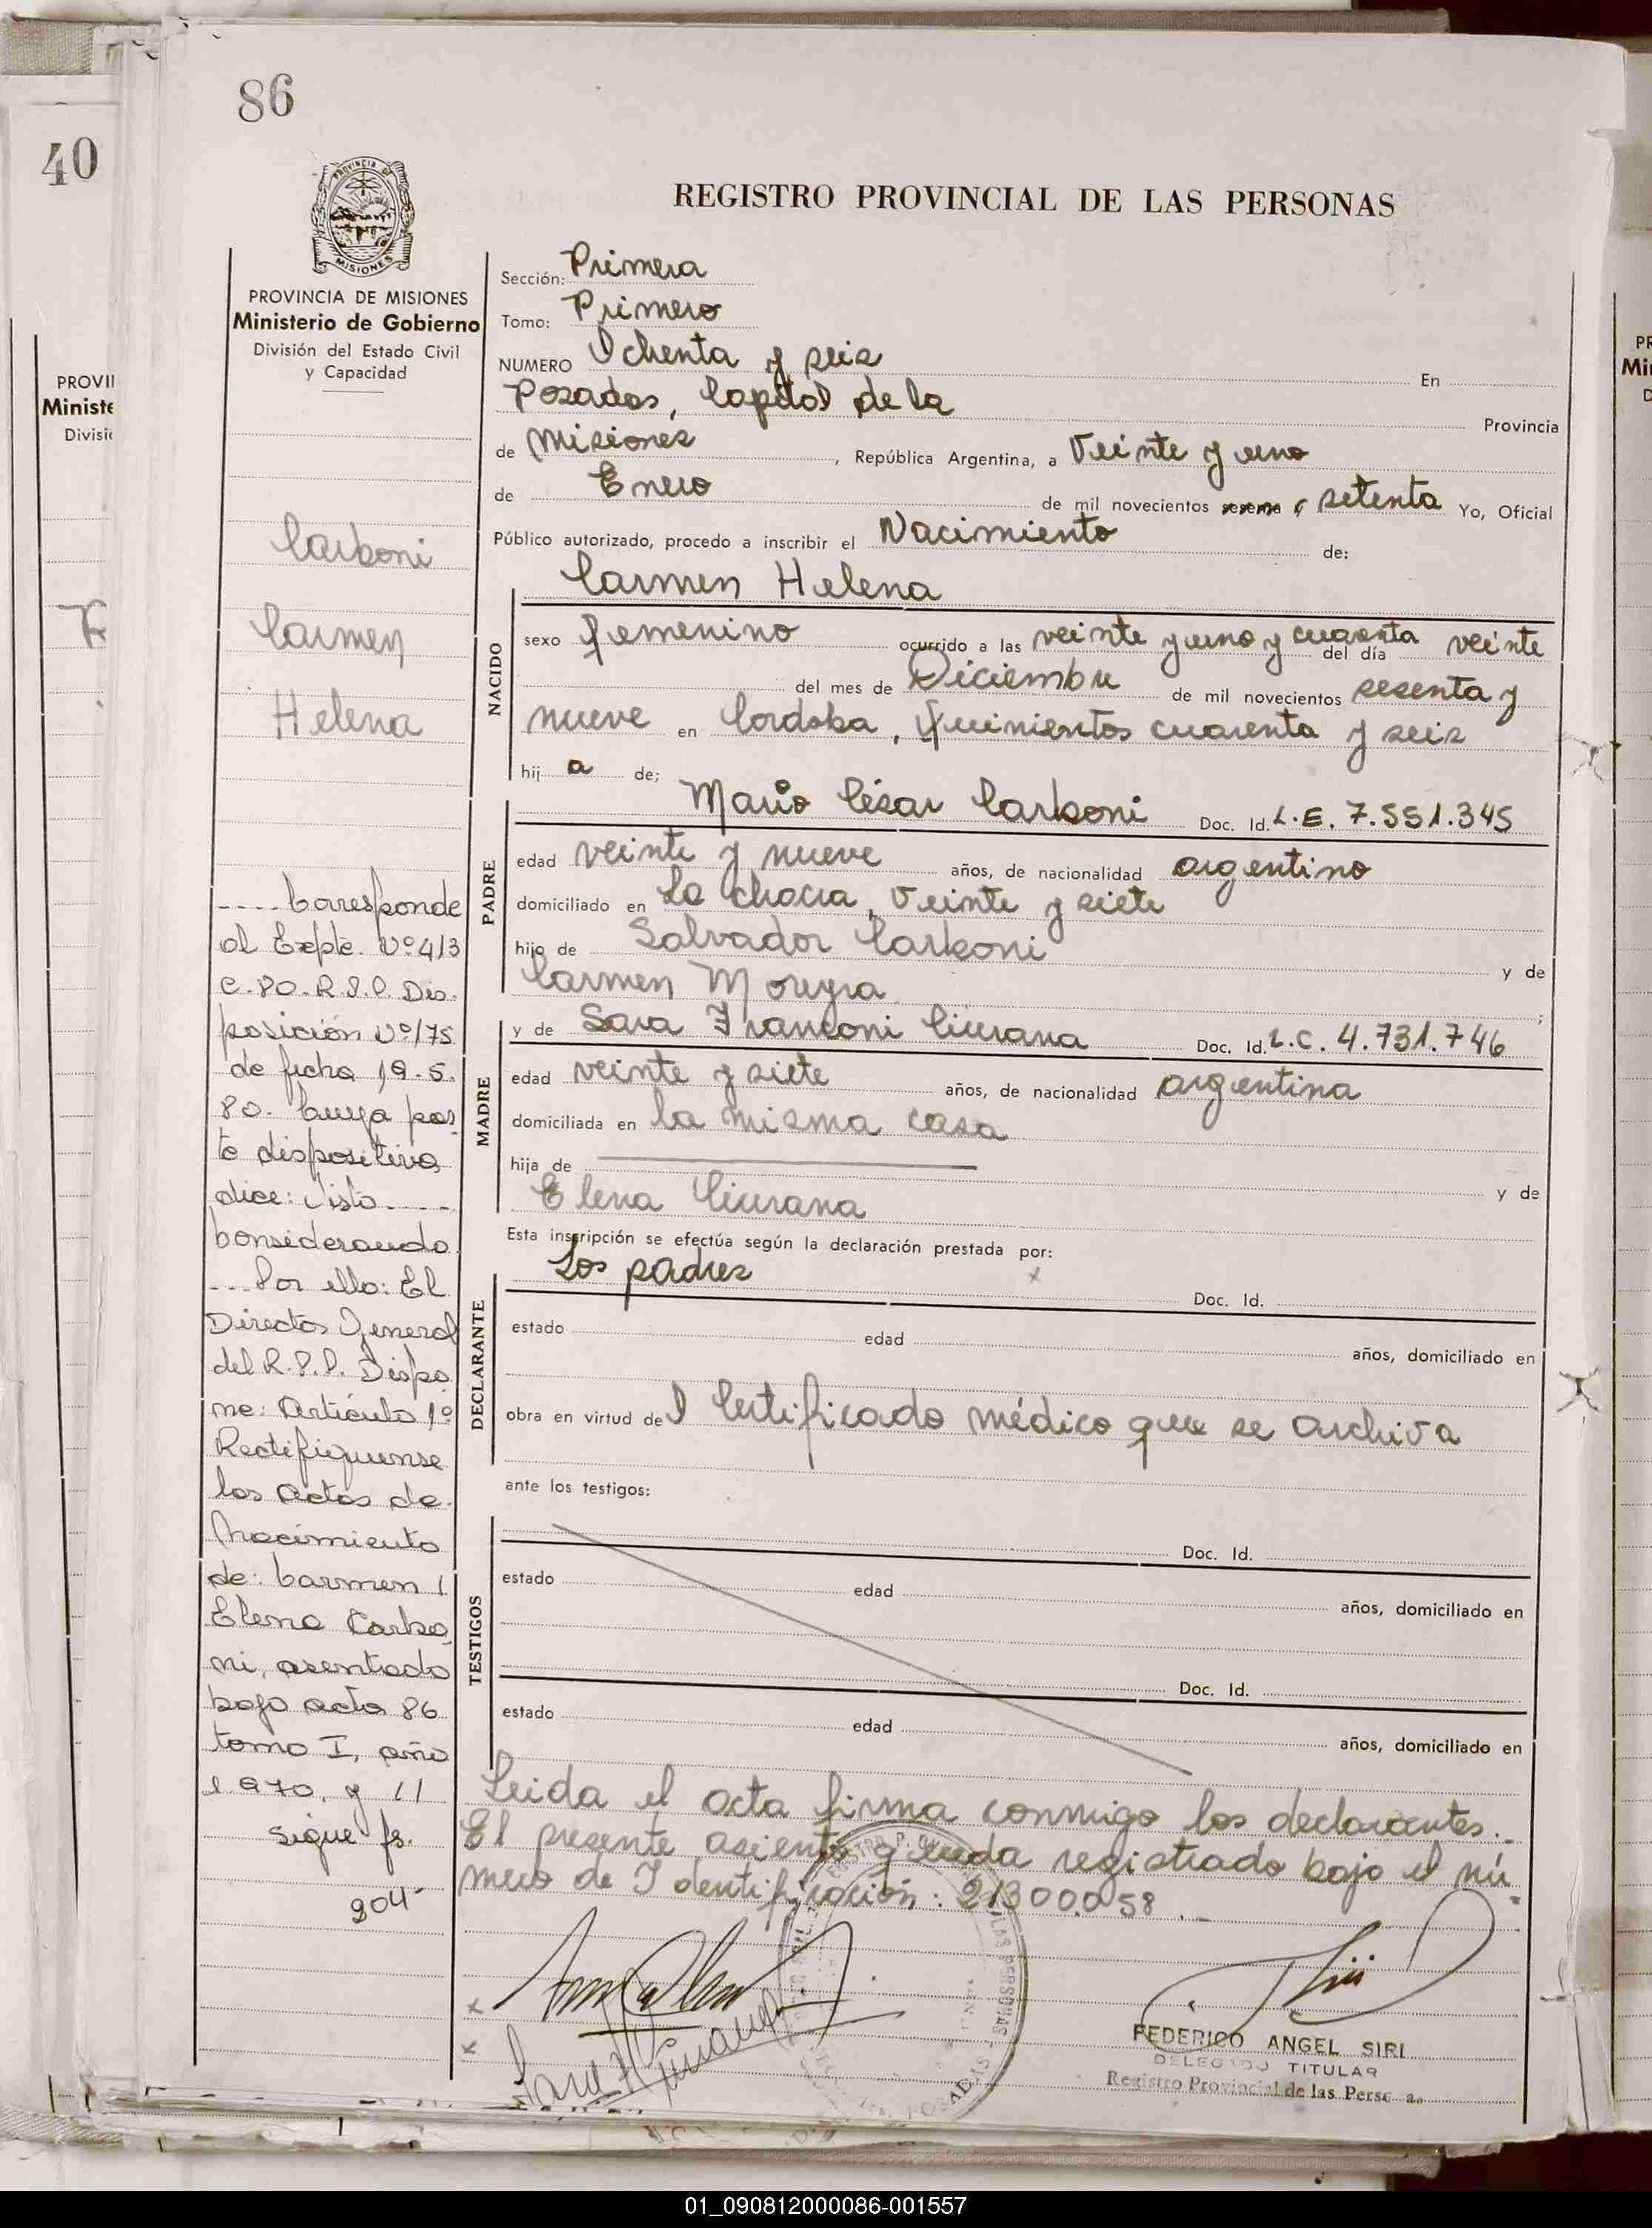 86
40
PROVINCIA DE
MISIONES
REGISTRO PROVINCIAL DE LAS PERSONAS
PROVINCIA DE MISIONES
Ministerio de Gobierno
División del Estado Civil
y Capacidad
Carboni
Carmen
Helena
.... Corresponde
al Expte. Nº 413
C.80.R.P.P. Dis-
posición Nº 175
de fecha 19.5.
80. Cuya par-
te dispositiva
dice: Visto....
Considerando
... Por ello: El
Director General
del R.P.P. Dispo
ne: Artículo 1º
Rectifiquense
las actas de
Nacimiento
de: Carmen
Elena Carbo
ni, asentada
bajo acta 86
tomo I, año
1.970, y 11
sigue fs.
204
Sección: Primera
Tomo: Primero
NUMERO Ochenta y seis En
Posadas, Capital de la Provincia
de Misiones, República Argentina, a Veinte y uno
de Enero de mil novecientos setenta Yo, Oficial
Público autorizado, procedo a inscribir el Nacimiento de:
NACIDO
Carmen Helena
sexo femenino ocurrido a las veinte y uno y cuarenta del día veinte
del mes de Diciembre de mil novecientos sesenta y
nueve en Cordoba, Quinientos cuarenta y seis
hija de;
PADRE
Mario César Carboni Doc. Id. L.E. 7.551.345
edad veinte y nueve años, de nacionalidad argentino
domiciliado en La chacra, Veinte y siete
hijo de Salvador Carboni y de
Carmen Moreyra ;
MADRE
y de Sara Franconi Ciurana Doc. Id. L.C. 4.731.746
edad veinte y siete años, de nacionalidad argentina
domiciliada en la misma casa
hija de y de
Elena Ciurana
Esta inscripción se efectúa según la declaración prestada por:
DECLARANTE
Los padres x
Doc. Id.
estado edad años, domiciliado en
obra en virtud del Certificado médico que se archiva
ante los testigos:
TESTIGOS
Doc. Id.
estado edad años, domiciliado en
Doc. Id.
estado edad años, domiciliado en
Leida el acta firma conmigo los declarantes.
El presente asiento queda registrado bajo el nú
mero de Identificación: 213000.058.-
FEDERICO ANGEL SIRI
DELEGADO TITULAR
Registro Provincial de las Perso as
01_090812000086-001557